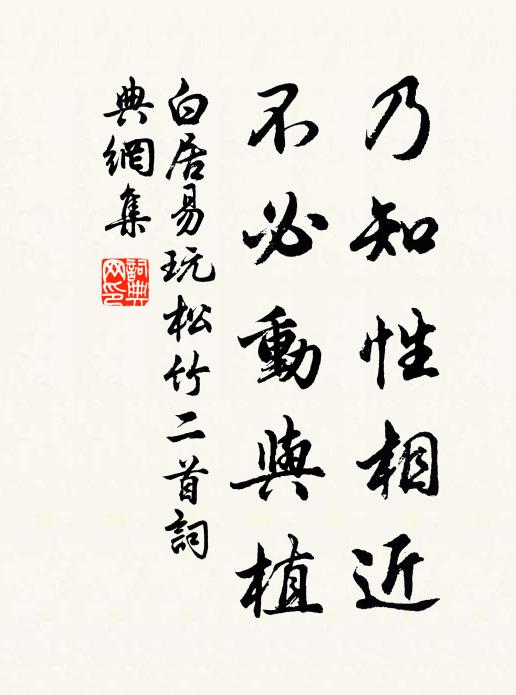 乃知性相近
不必動與植
白居易玩松竹二首詞
典網集
詞典
网印